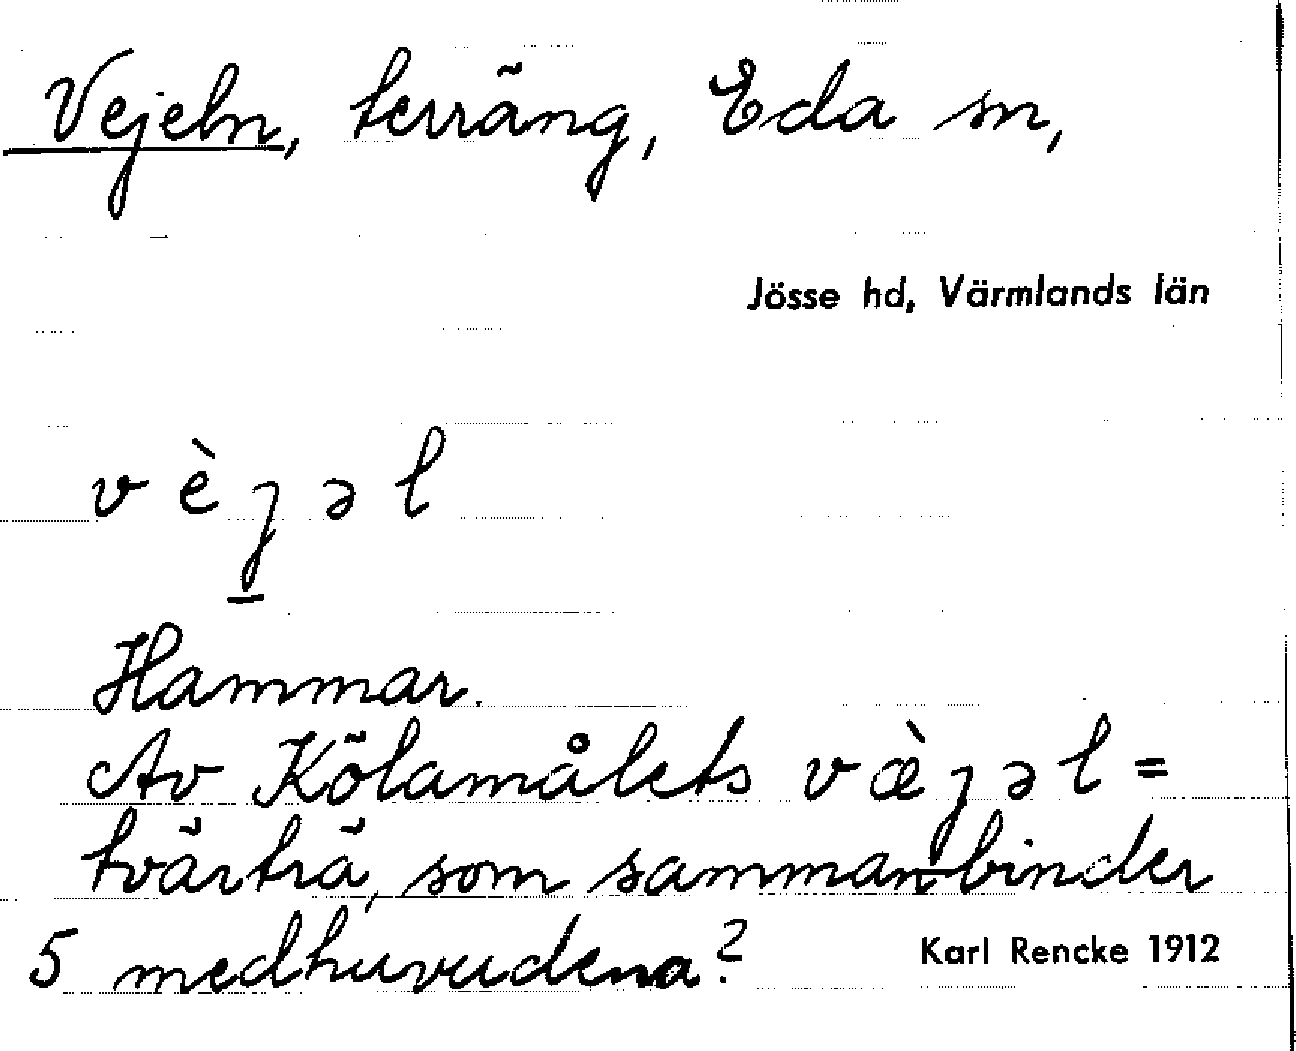 Vejeln, terräng, Eda sn,
Jösse hd, Värmlands län
vèȷəl
Hammar.
Av Kölamålets væ̀ȷəl =
tvärträ, som sammanbinder
5 medhuvudena?
Karl Rencke 1912